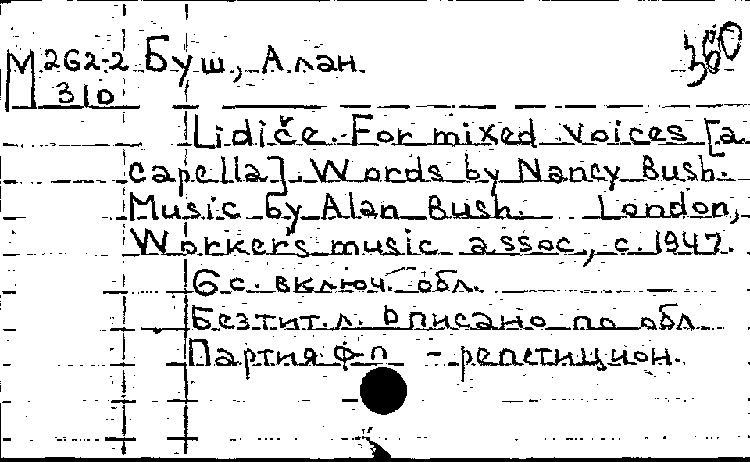 М 262-2 Буш, Алан. 360
310
Lidiče. For mixed voices [a
capella]. Words by Nancy Bush.
Music by Alan Bush. London,
Workers music assoc., c. 1947.
6 с. включ. обл.
Без тит. л. Описано по обл.
Партия ф-п - репетицион.